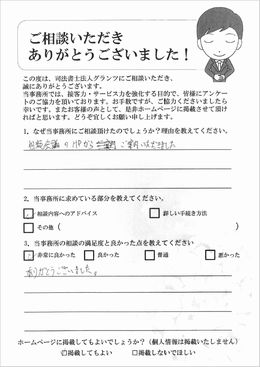 ご相談いただき
ありがとうございました！
この度は、司法書士法人グランツにご相談いただき、
誠にありがとうございます。
当事務所では、接客力・サービス力を強化する目的で、皆様にアンケー
トのご協力を頂いております。お手数ですが、ご協力くださいましたら
幸いです。またお客様の声として、是非ホームページに掲載させて頂け
ればと思います。どうぞ宜しくお願い申し上げます。
1. なぜ当事務所にご相談頂けたのでしょうか？理由を教えてください。
のHPから ご案内いただきました
2. 当事務所に求めている部分を教えてください。
相談内容へのアドバイス 詳しい手続き方法
その他（ ）
3. 当事務所の相談の満足度と良かった点を教えてください
非常に良かった 良かった 普通 悪かった
ありがとうございました。
ホームページに掲載してもよいでしょうか？（個人情報は掲載いたしません）
掲載してもよい 掲載しないでほしい